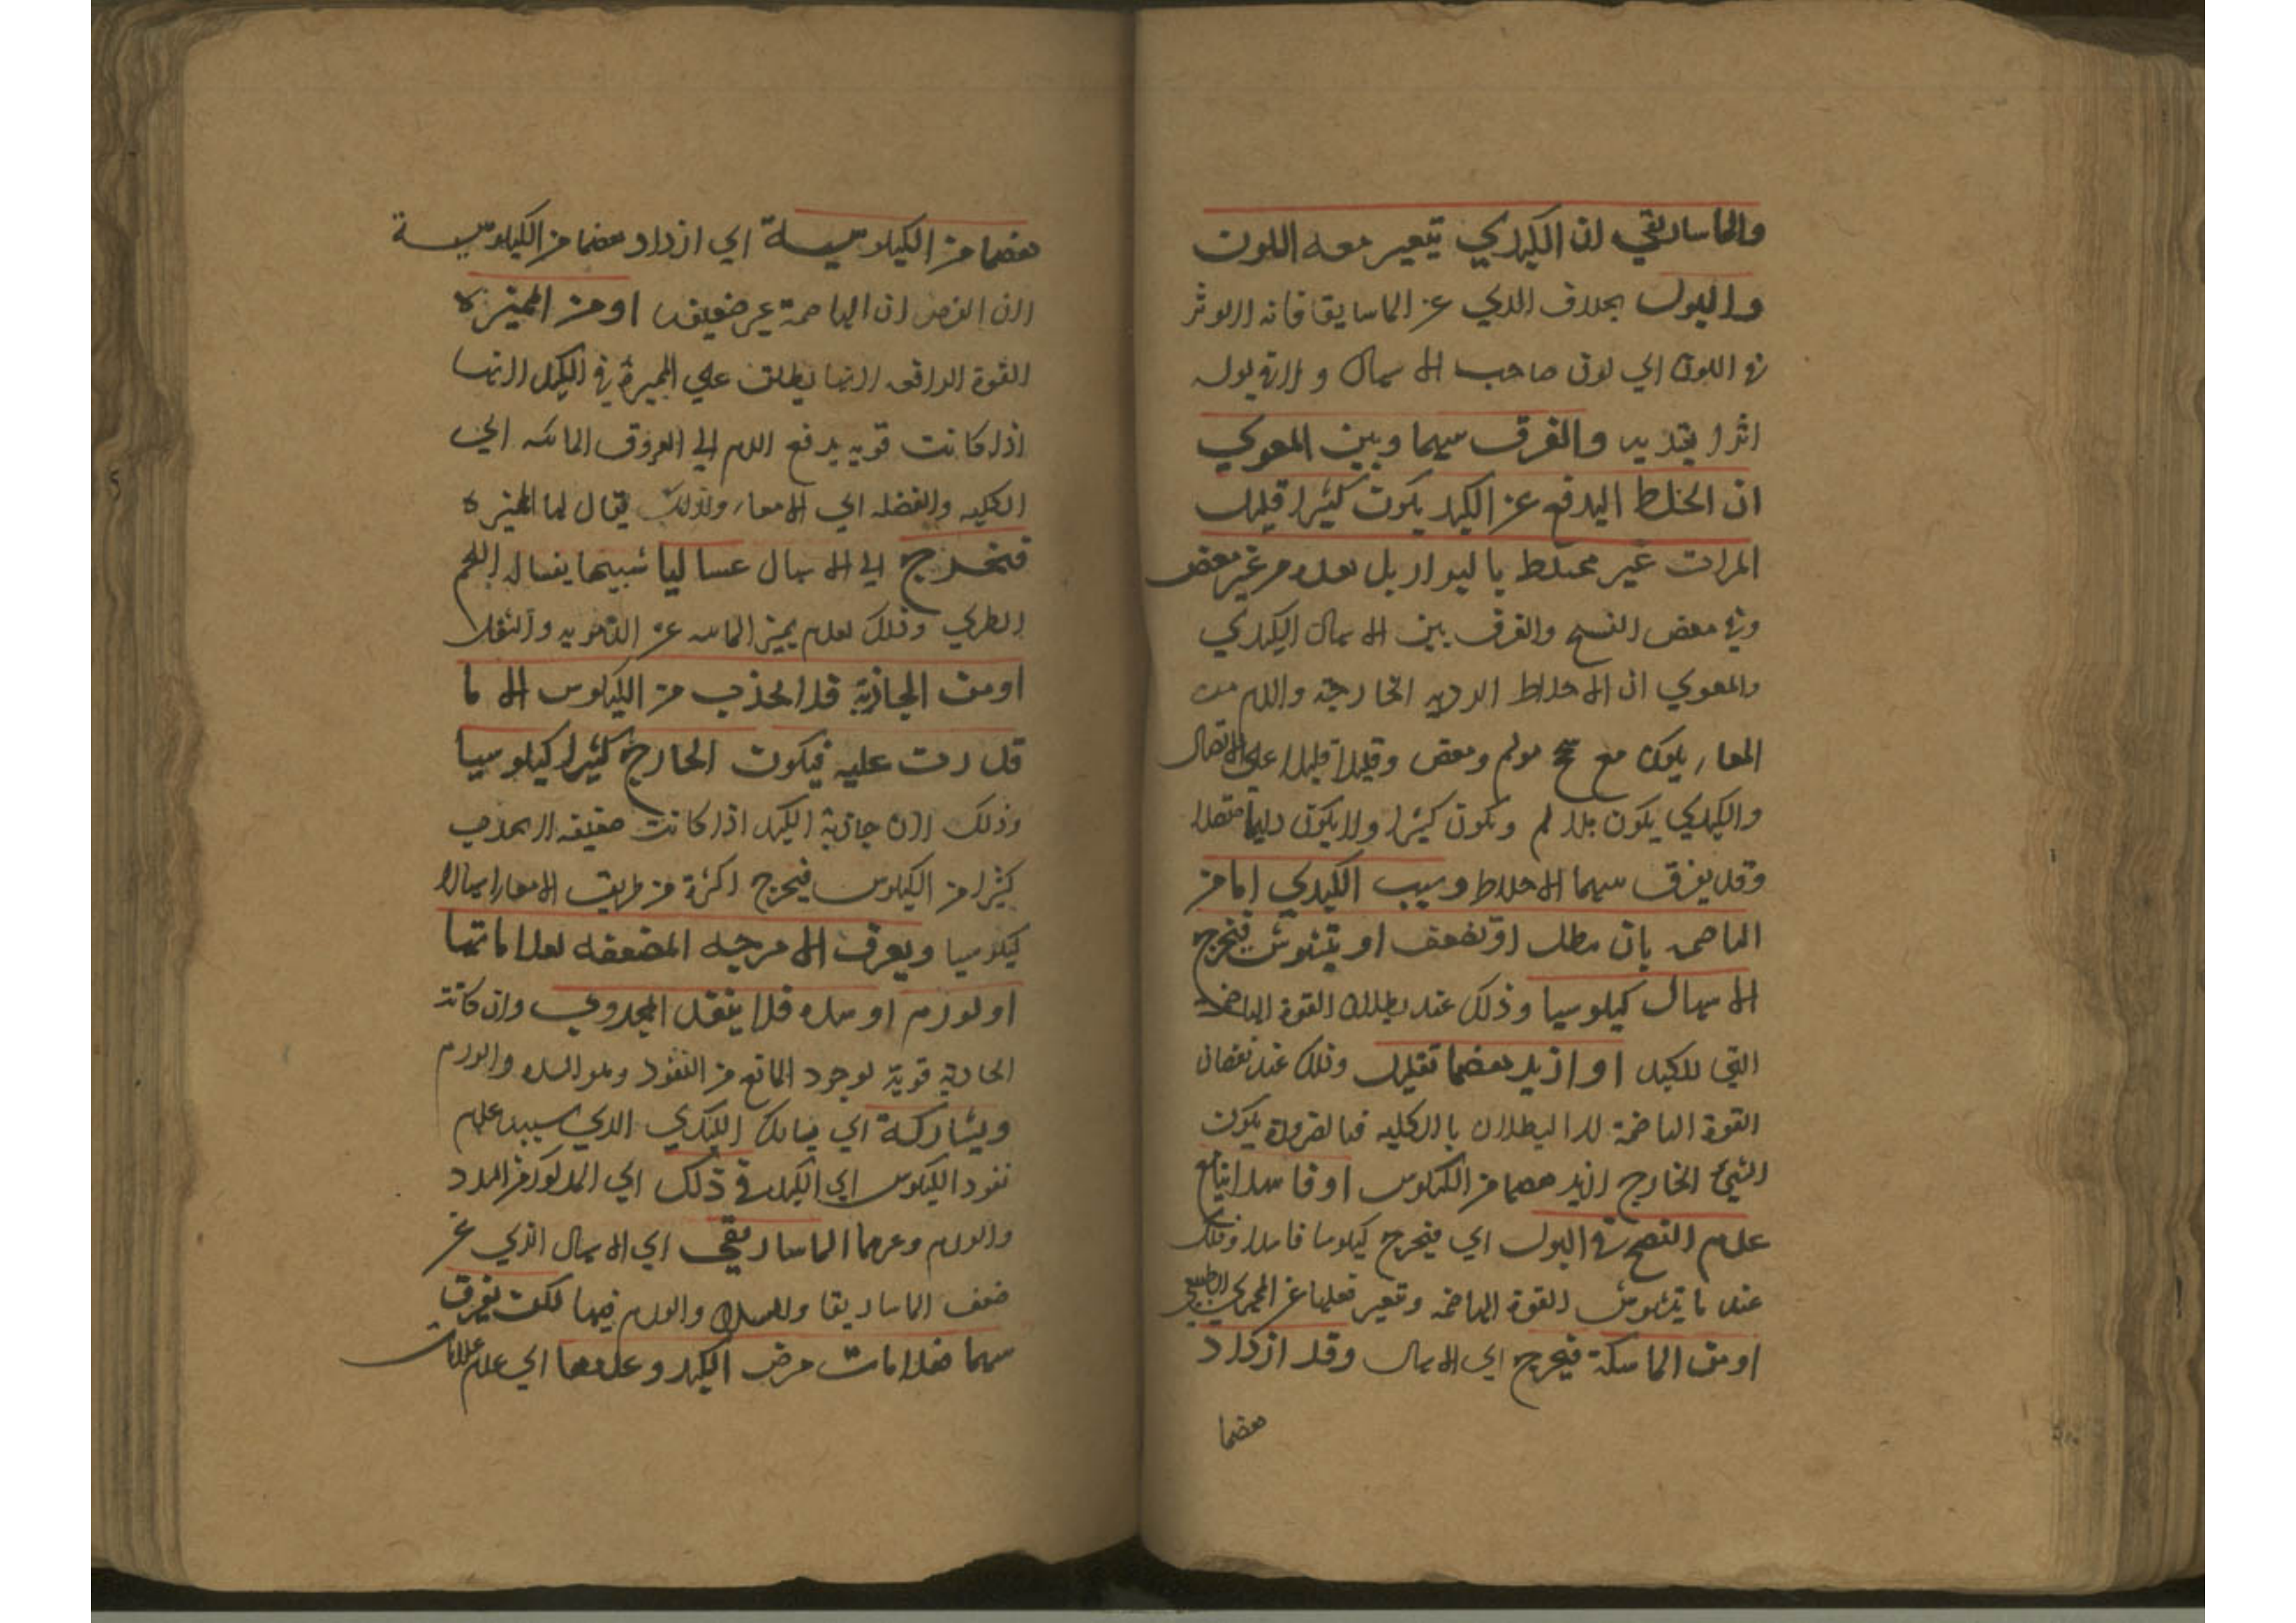 والماساريقي ان الكبدي يتعير معه اللون
والبول بحلاف الدي عن الماسايقا فانه لا يوثر
في اللون اي لون صاحب الاسهال ولا في بوله
اثرا يعتد به والفرق بينهما وبين المعوي
ان الخلط اليدفع عن الكبد يكون كثيرا قليل
المرات غير مختلط بالبراز بل بعده من غير مغص
وفي بعض النسخ والفرق بين الاسهال الكبدي
والمعوي ان الاخلاط الرديه الخارجة والدم من
المعاء يكون مع سحج مولم ومغص وقليلا قليلا على الاتصال
والكبدي يكون بلا الم ويكون كثيرا ولا يكون دايما متصلا
وقد يفرق بينهما الاخلاط وسبب الكبدي اما من
الهاضمه بان تبطل او تضعف او يتشوش فيخرج
الاسهال كيلوسيا وذلك عند بطلان القوة الهاضمة
التي للكبد او ازيد هضما بقليل وذلك عند نقصان
القوة الهاضمة لا البطلان بالكليه فبالضرورة يكون
الشيئ الخارج ازيد هضما من الكيلوس او فاسدا يتابع
عدم النضج في البول اي فيخرج كيلوسا فاسدا وذلك
عند ما يتشوش القوة الهاضمه وتغير فعلها عن المجري الطبيعي
او من الماسكة فيخرج اي الاسهال وقد ازداد
هضما
هضما من الكيلوسية اي ازداد هضما من الكيلوسية
لان الفرض ان الهاضمة غير ضعيفه او من المميزه
القوة الدافعه لانها يطلق علي المميزة في الكبد لانها
اذا كانت قويه يدفع الدم الي العروق المائيه الي
الكليه والفضله الي الامعاء ولذلك يقال لها المميزه
فتخرج اي الاسهال غساليا شبيها بغسالة اللحم
الطري وذلك لعدم تميز المائيه عن الدمويه والثفل
او من الجاذبة فلا تجذب من الكيلوس الا ما
قدرت عليه فيكون الخارج كثيرا كيلوسيا
وذلك لان جاذبة الكبد اذا كانت ضعيفه لا يجذب
كثيرا من الكيلوس فيخرج اكثره من طريق الامعاء اسهالا
كيلوسيا ويعرف الامزجه المضعفه بعلاماتها
او لورم او سده فلا ينفذ المجدوب وان كانت
الجاذبة قوية لوجود المانع من النفود وهو السده والورم
ويشاركه اي يشارك الكبدي الدي سببه عدم
نفود الكيلوس الي الكبد في ذلك اي المدكور من السدد
والورم وغيرهما الماساريقي اي الاسهال الذي عن
ضعف الماساريقا والسدد والورم فيها لكن يفرق
بينهما فعلامات مرض الكبد وعدمها اي عدم علامات